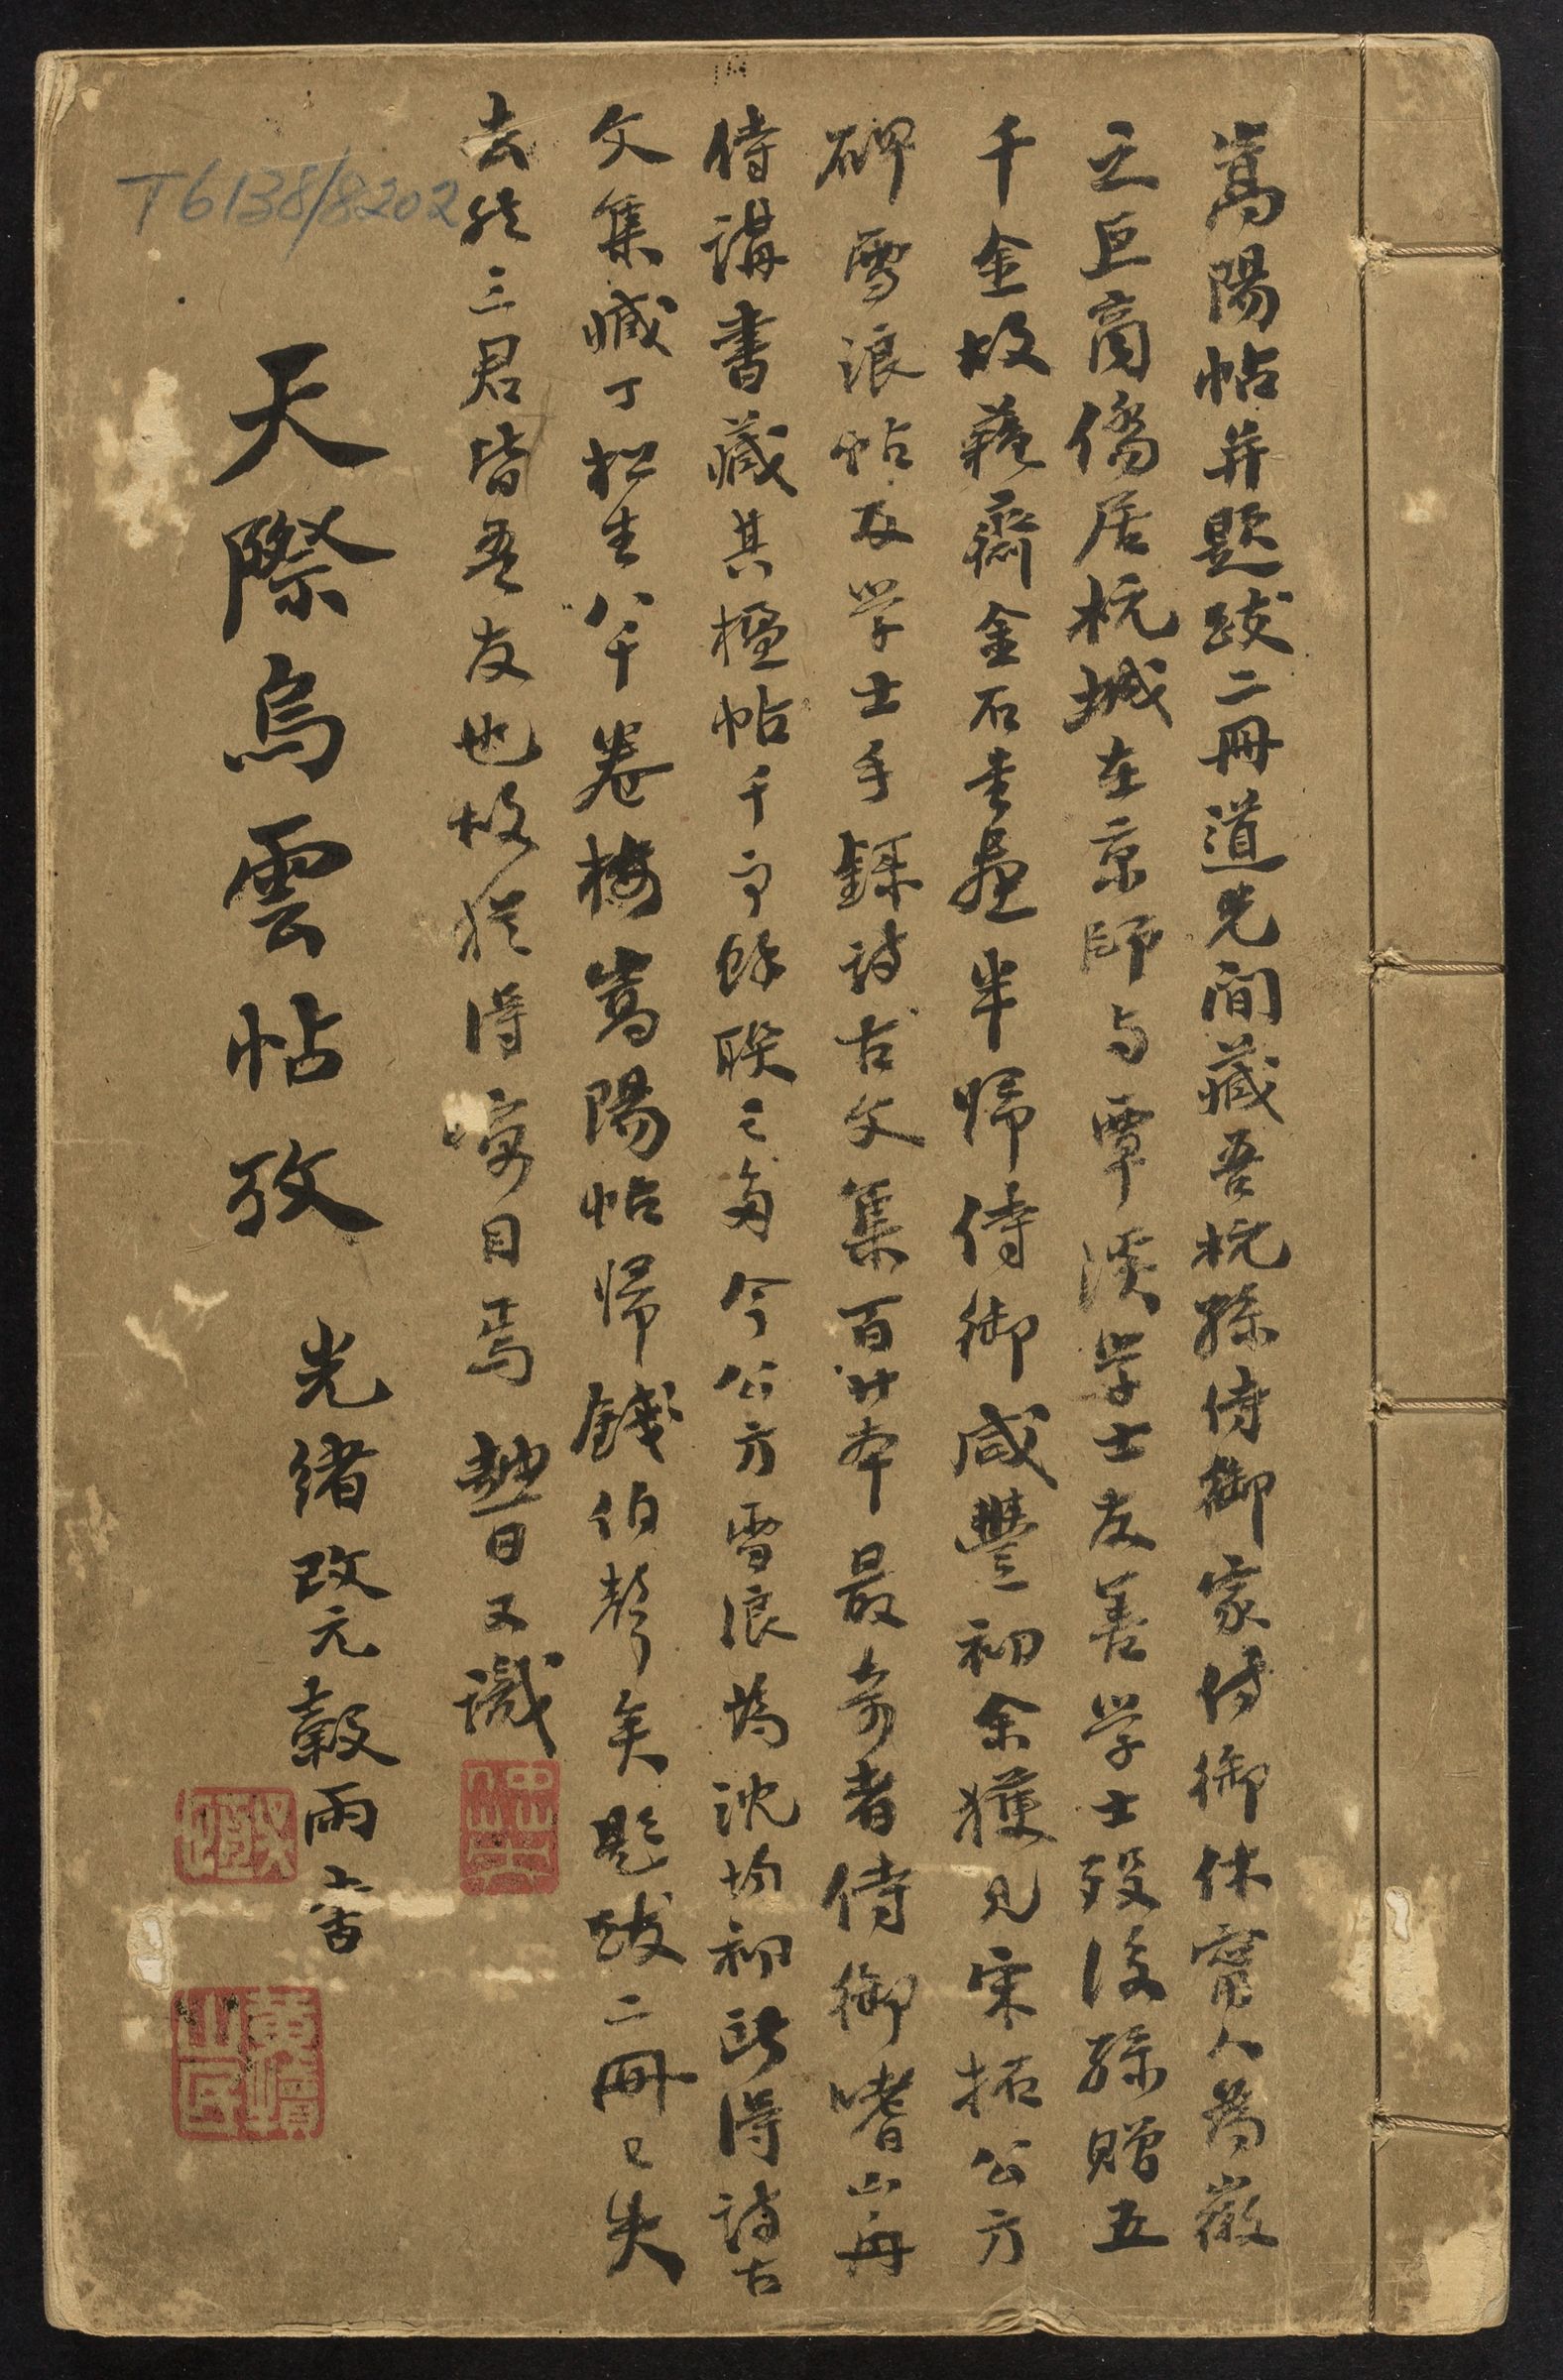 嵩陽帖并題跋二冊道光間藏吾杭孫侍御家侍御休甯人為徽
之巨商僑居杭城在京師与覃溪学士友善学士歿後孫贈五
千金故蘓齋金石書畫半歸侍御咸豐初余獲見宋拓公方
碑雪浪帖及学士手録詩古文集百廿本最奇者侍御嗜山舟
侍講書藏其楹帖千方餘联之多今公方雪浪為沈均初所得詩古
文集臧丁松生八千卷楼嵩陽帖歸錢伯聲矣題跋二冊已失
去然三君皆吾友也故猶得寓目焉 越日又識
天際烏雲帖攷
光緒改元穀雨
T6138/8202